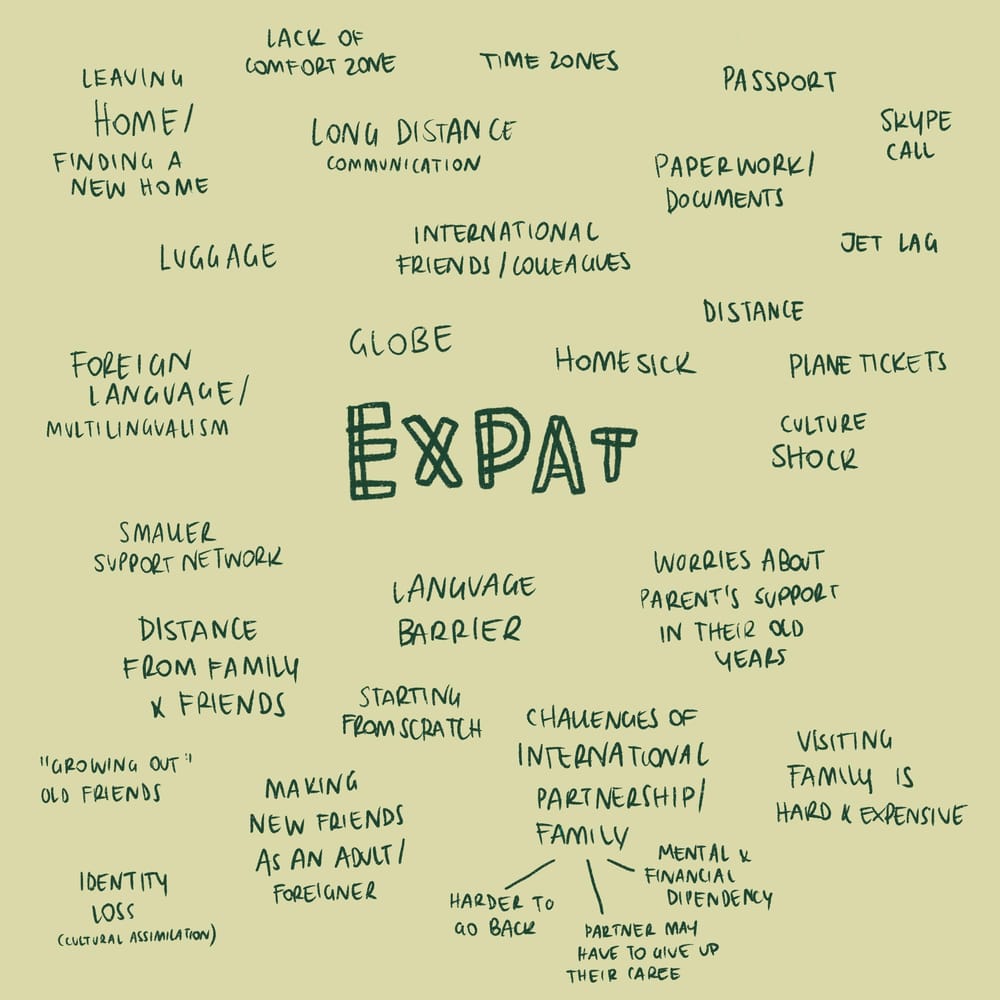 LACK OF
COMFORT ZONE
TIME ZONES
PASSPORT
LEAVING
HOME/
FINDING A
NEW HOME
LONG DISTANCE
COMMUNICATION
SKYPE
CALL
PAPERWORK/
DOCUMENTS
LUGGAGE
INTERNATIONAL
FRIENDS/COLLEAGUES
JET LAG
DISTANCE
GLOBE
HOMESICK
PLANE TICKETS
FOREIGN
LANGUAGE/
MULTILINGUALISM
EXPAT
CULTURE
SHOCK
SMALLER
SUPPORT NETWORK
LANGUAGE
BARRIER
WORRIES ABOUT
PARENT'S SUPPORT
IN THEIR OLD
YEARS
DISTANCE
FROM FAMILY
& FRIENDS
STARTING
FROM SCRATCH
CHALLENGES OF
INTERNATIONAL
PARTNERSHIP/
FAMILY
VISITING
FAMILY IS
HARD & EXPENSIVE
"GROWING OUT"
OLD FRIENDS
MAKING
NEW FRIENDS
AS AN ADULT/
FOREIGNER
MENTAL &
FINANCIAL
DIPENDENCY
HARDER TO
GO BACK
PARTNER MAY
HAVE TO GIVE UP
THEIR CAREE
IDENTITY
LOSS
(CULTURAL ASSIMILATION)